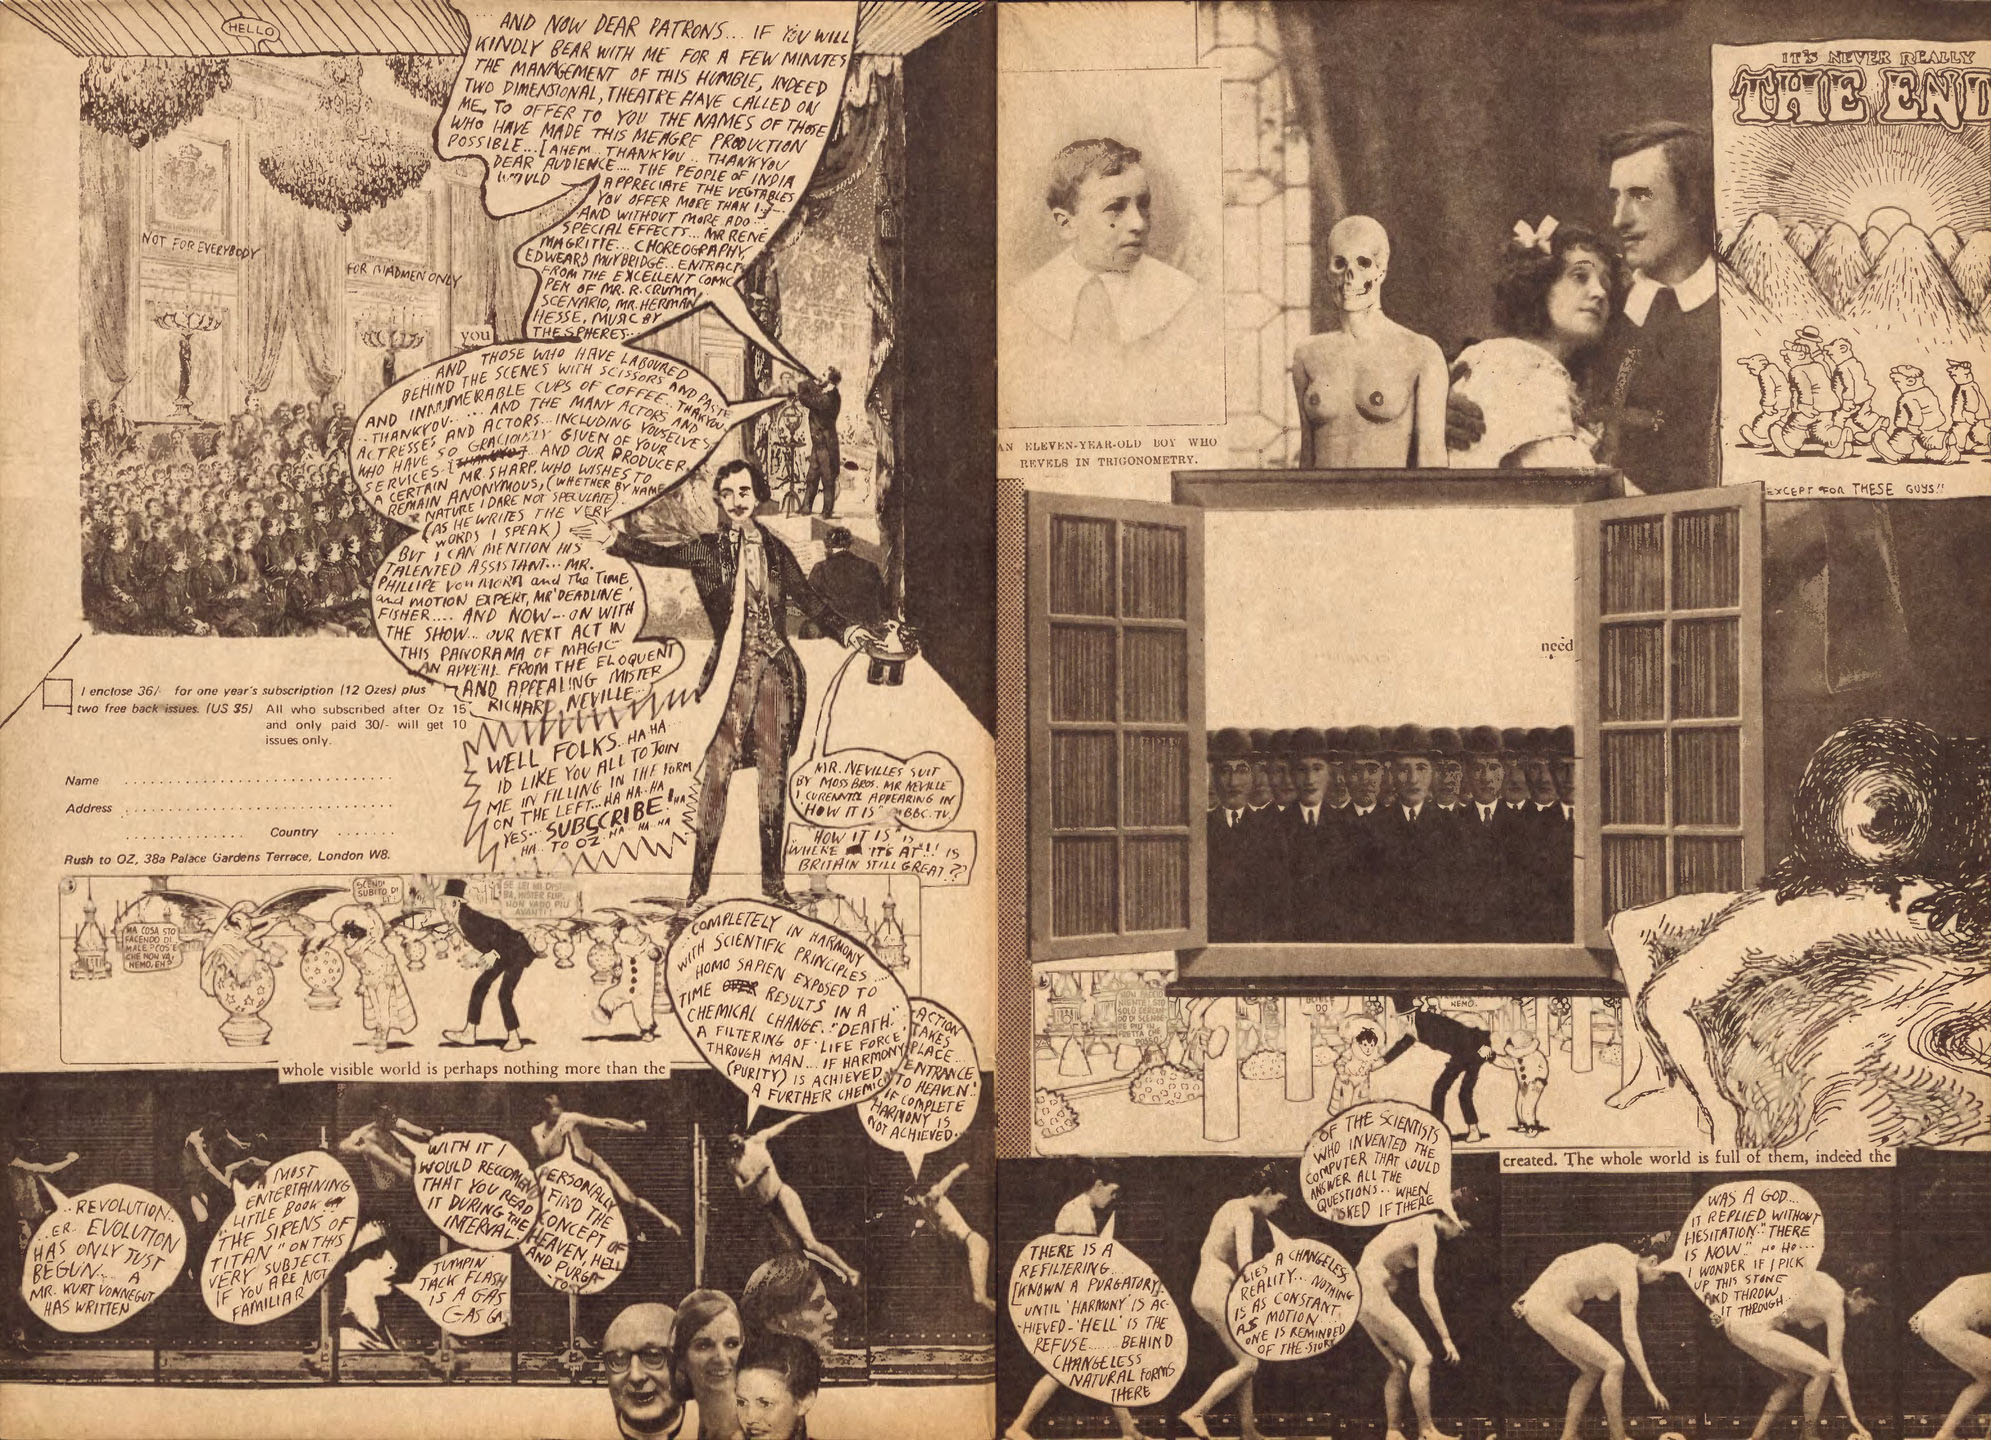 HELLO
AND NOW DEAR PATRONS... IF YOU WILL
KINDLY BEAR WITH ME FOR A FEW MINUTES
THE MANAGEMENT OF THIS HUMBLE, INDEED
TWO DIMENSIONAL, THEATRE HAVE CALLED ON
ME, TO OFFER TO YOU THE NAMES OF THOSE
WHO HAVE MADE THIS MEAGRE PRODUCTION
POSSIBLE...[AHEM.. THANKYOU.. THANKYOU
DEAR AUDIENCE.... THE PEOPLE OF INDIA
WOULD APPRECIATE THE VEGTABLES
YOU OFFER MORE THAN I.]...
AND WITHOUT MORE ADO..
SPECIAL EFFECTS... MR RENÉ
MAGRITTE... CHOREOGRAPHY,
EDWEARD MUYBRIDGE.. ENTRACT
FROM THE EXCELLENT COMIC
PEN OF MR. R. CRUMM,
SCENARIO, MR. HERMAN
HESSE, MUSIC BY
THE SPHERES...
NOT FOR EVERYBODY
FOR MADMEN ONLY
you
AND THOSE WHO HAVE LABOURED
BEHIND THE SCENES WITH SCISSORS AND PASTE
AND INNUMERABLE CUPS OF COFFEE. THANKYOU
..THANKYOU..... AND THE MANY ACTORS AND
ACTRESSES AND ACTORS... INCLUDING YOUSELVES
WHO HAVE SO GRACIOUSLY GIVEN OF YOUR
SERVICES. [THANKYOU] AND OUR PRODUCER,
A CERTAIN MR. SHARP. WHO WISHES TO
REMAIN ANONYMOUS, (WHETHER BY NAME
OR NATURE I DARE NOT SPECULATE)
(AS HE WRITES THE VERY
WORDS I SPEAK)
BUT I CAN MENTION HIS
TALENTED ASSISTANT... MR.
PHILLIPE VON MORA and the TIME
and MOTION EXPERT, MR 'DEADLINE'
FISHER.... AND NOW... ON WITH
THE SHOW... OUR NEXT ACT IN
THIS PANORAMA OF MAGIC
AN APPEAL FROM THE ELOQUENT
AND APPEALING MISTER
RICHARD NEVILLE...
I enclose 36/- for one year's subscription (12 Ozes) plus
two free back issues. (US $5) All who subscribed after Oz 15
and only paid 30/- will get 10
issues only.
Name
Address
Country
Rush to OZ, 38a Palace Gardens Terrace, London W8.
WELL FOLKS.. HA HA
ID LIKE YOU ALL TO JOIN
ME IN FILLING IN THE FORM
ON THE LEFT...HA HA..HA
YES... SUBSCRIBE! HA
HA.. TO OZ.. HA HA HA
MR. NEVILLES SUIT
BY MOSS BROS. MR NEVILLE
I CURENNTL APPEARING IN
"HOW IT IS" BBC. TV.
"HOW IT IS" IS
"WHERE IT'S AT"!! IS
BRITAIN STILL GREAT.??
MA COSA STO
FACENDO DI
MALE? COS'E
CHE NON VA,
NEMO, EH?
SCENDI
SUBITO DI
SE LEI MI DISTUR
BA, MISTER FLIP,
NON VADO PIU
AVANTI!
whole visible world is perhaps nothing more than the
COMPLETELY IN HARMONY
WITH SCIENTIFIC PRINCIPLES....
HOMO SAPIEN EXPOSED TO
TIME RESULTS IN A
CHEMICAL CHANGE.. "DEATH."
A FILTERING OF 'LIFE FORCE'
THROUGH MAN... IF HARMONY
(PURITY) IS ACHIEVED
A FURTHER CHEMIC
ACTION
TAKES
PLACE...
ENTRANCE
TO HEAVEN..
IF COMPLETE
HARMONY IS
NOT ACHIEVED..
..REVOLUTION..
..ER. EVOLUTION
HAS ONLY JUST
BEGUN... A
MR. KURT VONNEGUT
HAS WRITTEN
A MOST
ENTERTAINING
LITTLE BOOK
"THE SIRENS OF
TITAN" ON THIS
VERY SUBJECT.
IF YOU ARE NOT
FAMILIAR
WITH IT I
WOULD RECCOMEND
THAT YOU READ
IT DURING THE
INTERVAL.
JUMPIN
JACK FLASH
IS A GAS
GAS GA
PERSONALLY
I FIND THE
CONCEPT OF
HEAVEN, HELL
AND PURGA
TO
AN ELEVEN-YEAR-OLD BOY WHO
REVELS IN TRIGONOMETRY.
IT'S NEVER REALLY
THE END
EXCEPT FOR THESE GUYS!!
need
NEMO.
created. The whole world is full of them, indeed the
THERE IS A
REFILTERING...
[KNOWN A PURGATORY]
UNTIL 'HARMONY' IS AC-
-HIEVED-'HELL' IS THE
REFUSE...... BEHIND
CHANGELESS
NATURAL FORMS
THERE
LIES A CHANGELESS
REALITY... NOTHING
IS AS CONSTANT
AS MOTION
ONE IS REMINDED
OF THE STORY
OF THE SCIENTISTS
WHO INVENTED THE
COMPUTER THAT COULD
ANSWER ALL THE
QUESTIONS.. WHEN
ASKED IF THERE
WAS A GOD...
IT REPLIED WITHOUT
HESITATION." THERE
IS NOW" HO HO...
I WONDER IF I PICK
UP THIS STONE
AND THROW
IT THROUGH...